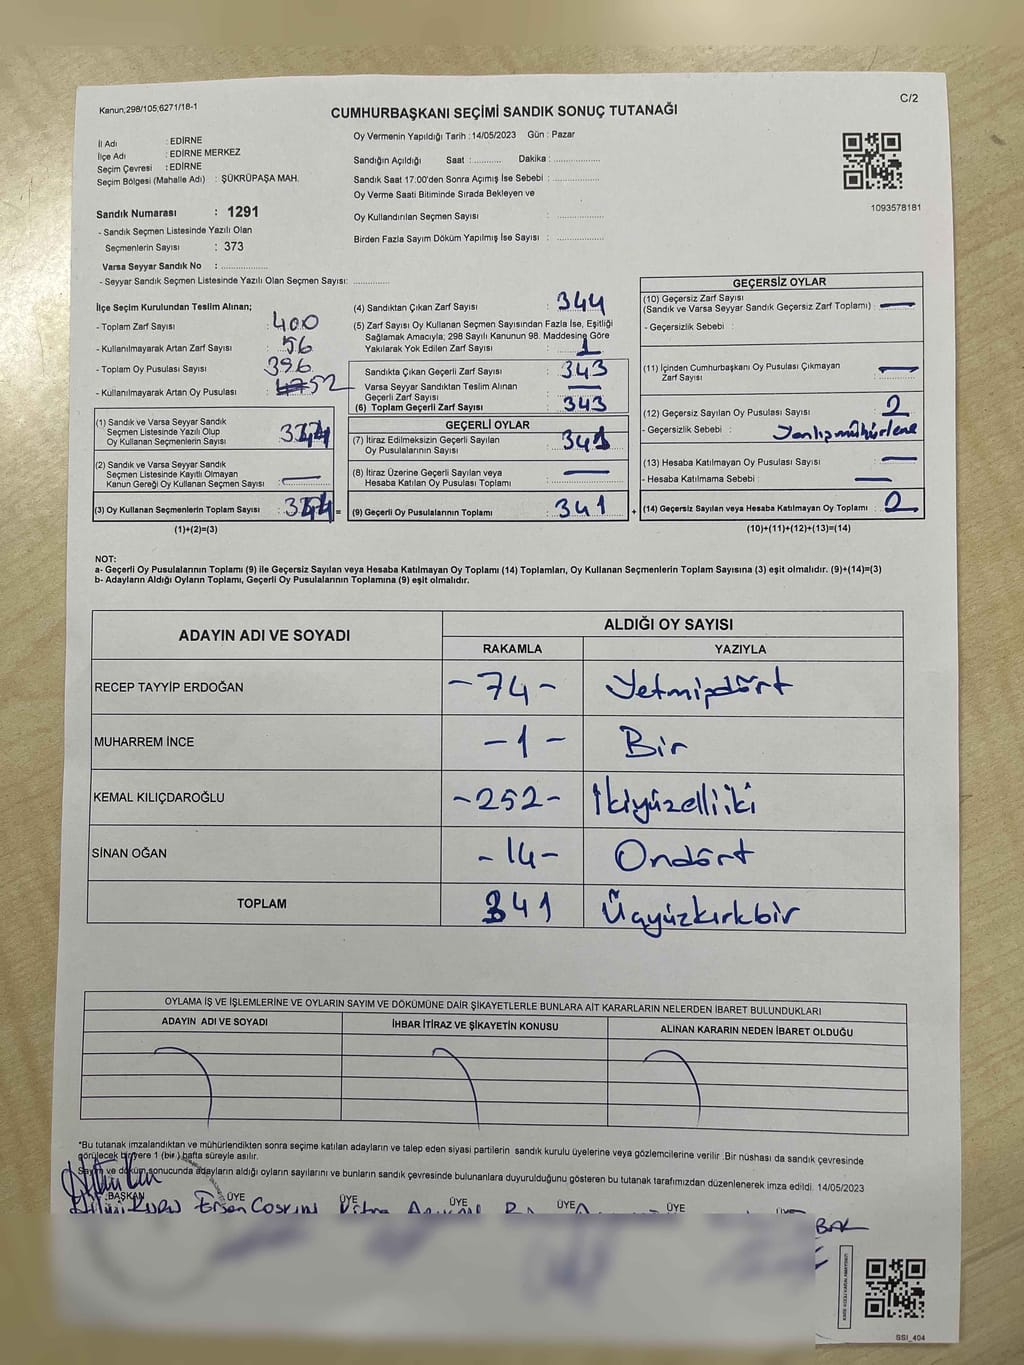 Kanun;298/105;6271/18-1
C/2
CUMHURBAŞKANI SEÇİMİ SANDIK SONUÇ TUTANAĞI
İl Adı : EDİRNE
İlçe Adı : EDİRNE MERKEZ
Seçim Çevresi : EDİRNE
Seçim Bölgesi (Mahalle Adı) : ŞÜKRÜPAŞA MAH.
Sandık Numarası : 1291
- Sandık Seçmen Listesinde Yazılı Olan
Seçmenlerin Sayısı : 373
Varsa Seyyar Sandık No : ..................
- Seyyar Sandık Seçmen Listesinde Yazılı Olan Seçmen Sayısı: ..............
Oy Vermenin Yapıldığı Tarih :14/05/2023 Gün : Pazar
Sandığın Açıldığı Saat :........... Dakika :..................
Sandık Saat 17:00'den Sonra Açımış İse Sebebi :..................
Oy Verme Saati Bitiminde Sırada Bekleyen ve
Oy Kullandırılan Seçmen Sayısı : ..................
Birden Fazla Sayım Döküm Yapılmış İse Sayısı : ..................
1093578181
İlçe Seçim Kurulundan Teslim Alınan;
- Toplam Zarf Sayısı : 400
- Kullanılmayarak Artan Zarf Sayısı : 56
- Toplam Oy Pusulası Sayısı : 396
- Kullanılmayarak Artan Oy Pusulası : 52
(1) Sandık ve Varsa Seyyar Sandık
Seçmen Listesinde Yazılı Olup
Oy Kullanan Seçmenlerin Sayısı :
(2) Sandık ve Varsa Seyyar Sandık
Seçmen Listesinde Kayıtlı Olmayan
Kanun Gereği Oy Kullanan Seçmen Sayısı : —
(3) Oy Kullanan Seçmenlerin Toplam Sayısı : =
(1)+(2)=(3)
(4) Sandıktan Çıkan Zarf Sayısı : 344
(5) Zarf Sayısı Oy Kullanan Seçmen Sayısından Fazla İse, Eşitliği
Sağlamak Amacıyla; 298 Sayılı Kanunun 98. Maddesine Göre
Yakılarak Yok Edilen Zarf Sayısı : 1
Sandıkta Çıkan Geçerli Zarf Sayısı : 343
Varsa Seyyar Sandıktan Teslim Alınan
Geçerli Zarf Sayısı : —
(6) Toplam Geçerli Zarf Sayısı : 343
GEÇERLİ OYLAR
(7) İtiraz Edilmeksizin Geçerli Sayılan
Oy Pusulalarının Sayısı : 341
(8) İtiraz Üzerine Geçerli Sayılan veya
Hesaba Katılan Oy Pusulası Toplamı : —
(9) Geçerli Oy Pusulalarının Toplamı : 341 +
GEÇERSİZ OYLAR
(10) Geçersiz Zarf Sayısı
(Sandık ve Varsa Seyyar Sandık Geçersiz Zarf Toplamı) : —
- Geçersizlik Sebebi :
(11) İçinden Cumhurbaşkanı Oy Pusulası Çıkmayan
Zarf Sayısı : —
(12) Geçersiz Sayılan Oy Pusulası Sayısı : 2
- Geçersizlik Sebebi : Yanlış mühürleme
(13) Hesaba Katılmayan Oy Pusulası Sayısı : —
- Hesaba Katılmama Sebebi : —
(14) Geçersiz Sayılan veya Hesaba Katılmayan Oy Toplamı : 2
(10)+(11)+(12)+(13)=(14)
NOT:
a- Geçerli Oy Pusulalarının Toplamı (9) ile Geçersiz Sayılan veya Hesaba Katılmayan Oy Toplamı (14) Toplamları, Oy Kullanan Seçmenlerin Toplam Sayısına (3) eşit olmalıdır. (9)+(14)=(3)
b- Adayların Aldığı Oyların Toplamı, Geçerli Oy Pusulalarının Toplamına (9) eşit olmalıdır.
ADAYIN ADI VE SOYADI
ALDIĞI OY SAYISI
RAKAMLA YAZIYLA
RECEP TAYYİP ERDOĞAN -74- Yetmişdört
MUHARREM İNCE -1- Bir
KEMAL KILIÇDAROĞLU -252- İkiyüzelliiki
SİNAN OĞAN -14- Ondört
TOPLAM 341 Üçyüzkırkbir
OYLAMA İŞ VE İŞLEMLERİNE VE OYLARIN SAYIM VE DÖKÜMÜNE DAİR ŞİKAYETLERLE BUNLARA AİT KARARLARIN NELERDEN İBARET BULUNDUKLARI
ADAYIN ADI VE SOYADI İHBAR İTİRAZ VE ŞİKAYETİN KONUSU ALINAN KARARIN NEDEN İBARET OLDUĞU
*Bu tutanak imzalandıktan ve mühürlendikten sonra seçime katılan adayların ve talep eden siyasi partilerin sandık kurulu üyelerine veya gözlemcilerine verilir. Bir nüshası da sandık çevresinde
görülecek bir yere 1 (bir ) hafta süreyle asılır.
Sayım ve döküm sonucunda adayların aldığı oyların sayılarını ve bunların sandık çevresinde bulunanlara duyurulduğunu gösteren bu tutanak tarafımızdan düzenlenerek imza edildi. 14/05/2023
BAŞKAN ÜYE ÜYE ÜYE ÜYE ÜYE ÜYE
SSI_404